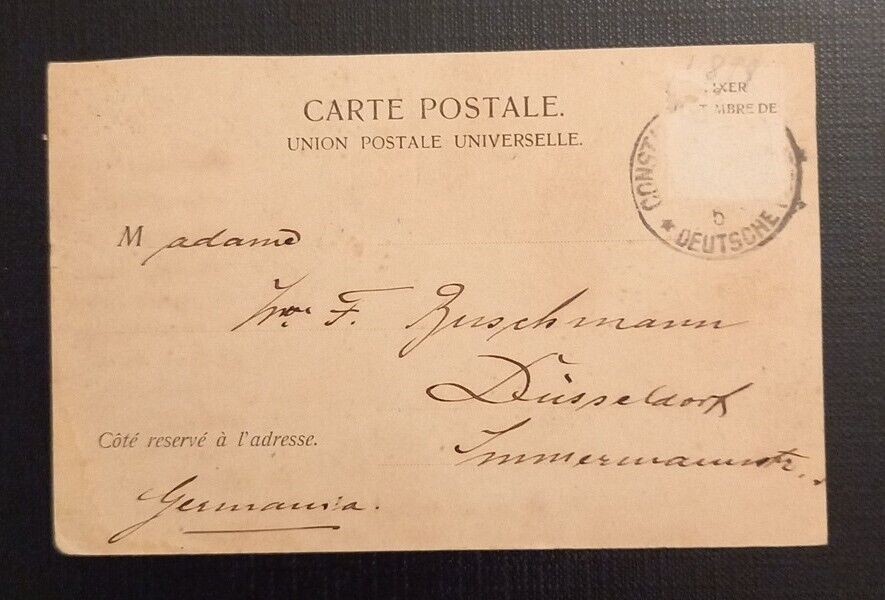 CARTE POSTALE.
UNION POSTALE UNIVERSELLE.
IXER
MBRE DE
CONST
5
★ DEUTSCHE
Madame
F.
Düsseldorf
Immermannstr.
Côté reservé à l'adresse.
Germania.